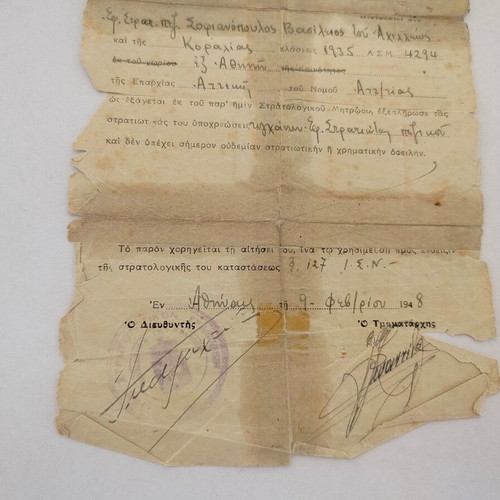 Ἐφ. Στρατ. πεζ. Σοφιανόπουλος Βασίλειος τοῦ Ἀχιλλέως
καὶ τῆς Κοραλίας κλάσεως 1935 ΑΣΜ 4294
ἐκ τοῦ χωρίου ἐξ Ἀθηνῶν τῆς κοινότητος
τῆς Ἐπαρχίας Ἀττικῆς τοῦ Νομοῦ Ἀττικῆς
ὡς ἐξάγεται ἐκ τοῦ παρ' ἡμῖν Στρατολογικοῦ Μητρώου, ἐξεπλήρωσε τὰς
στρατιωτικάς του ὑποχρεώσεις τυγχάνων Ἐφ. Στρατιώτης πεζικοῦ
καὶ δὲν ὑπέχει σήμερον οὐδεμίαν στρατιωτικὴν ἢ χρηματικὴν ὀφειλήν.
Τὸ παρὸν χορηγεῖται τῇ αἰτήσει του, ἵνα τῷ χρησιμεύσῃ πρὸς ἔνδειξιν
τῆς στρατολογικῆς του καταστάσεως 127 Ι.Σ.Ν.-
Ἐν Ἀθήναις τῇ 9- Φεβρίου 1948
Ὁ Διευθυντὴς Ὁ Τμηματάρχης